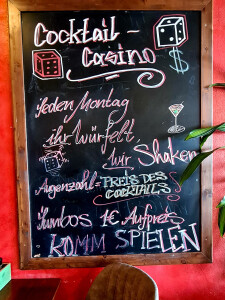 Cocktail -
Casino
$
Jeden Montag
ihr würfelt
wir Shaken
Augenzahl = PREIS DES
COCKTAILS
Jumbos 1€ Aufpreis
KOMM SPIELEN